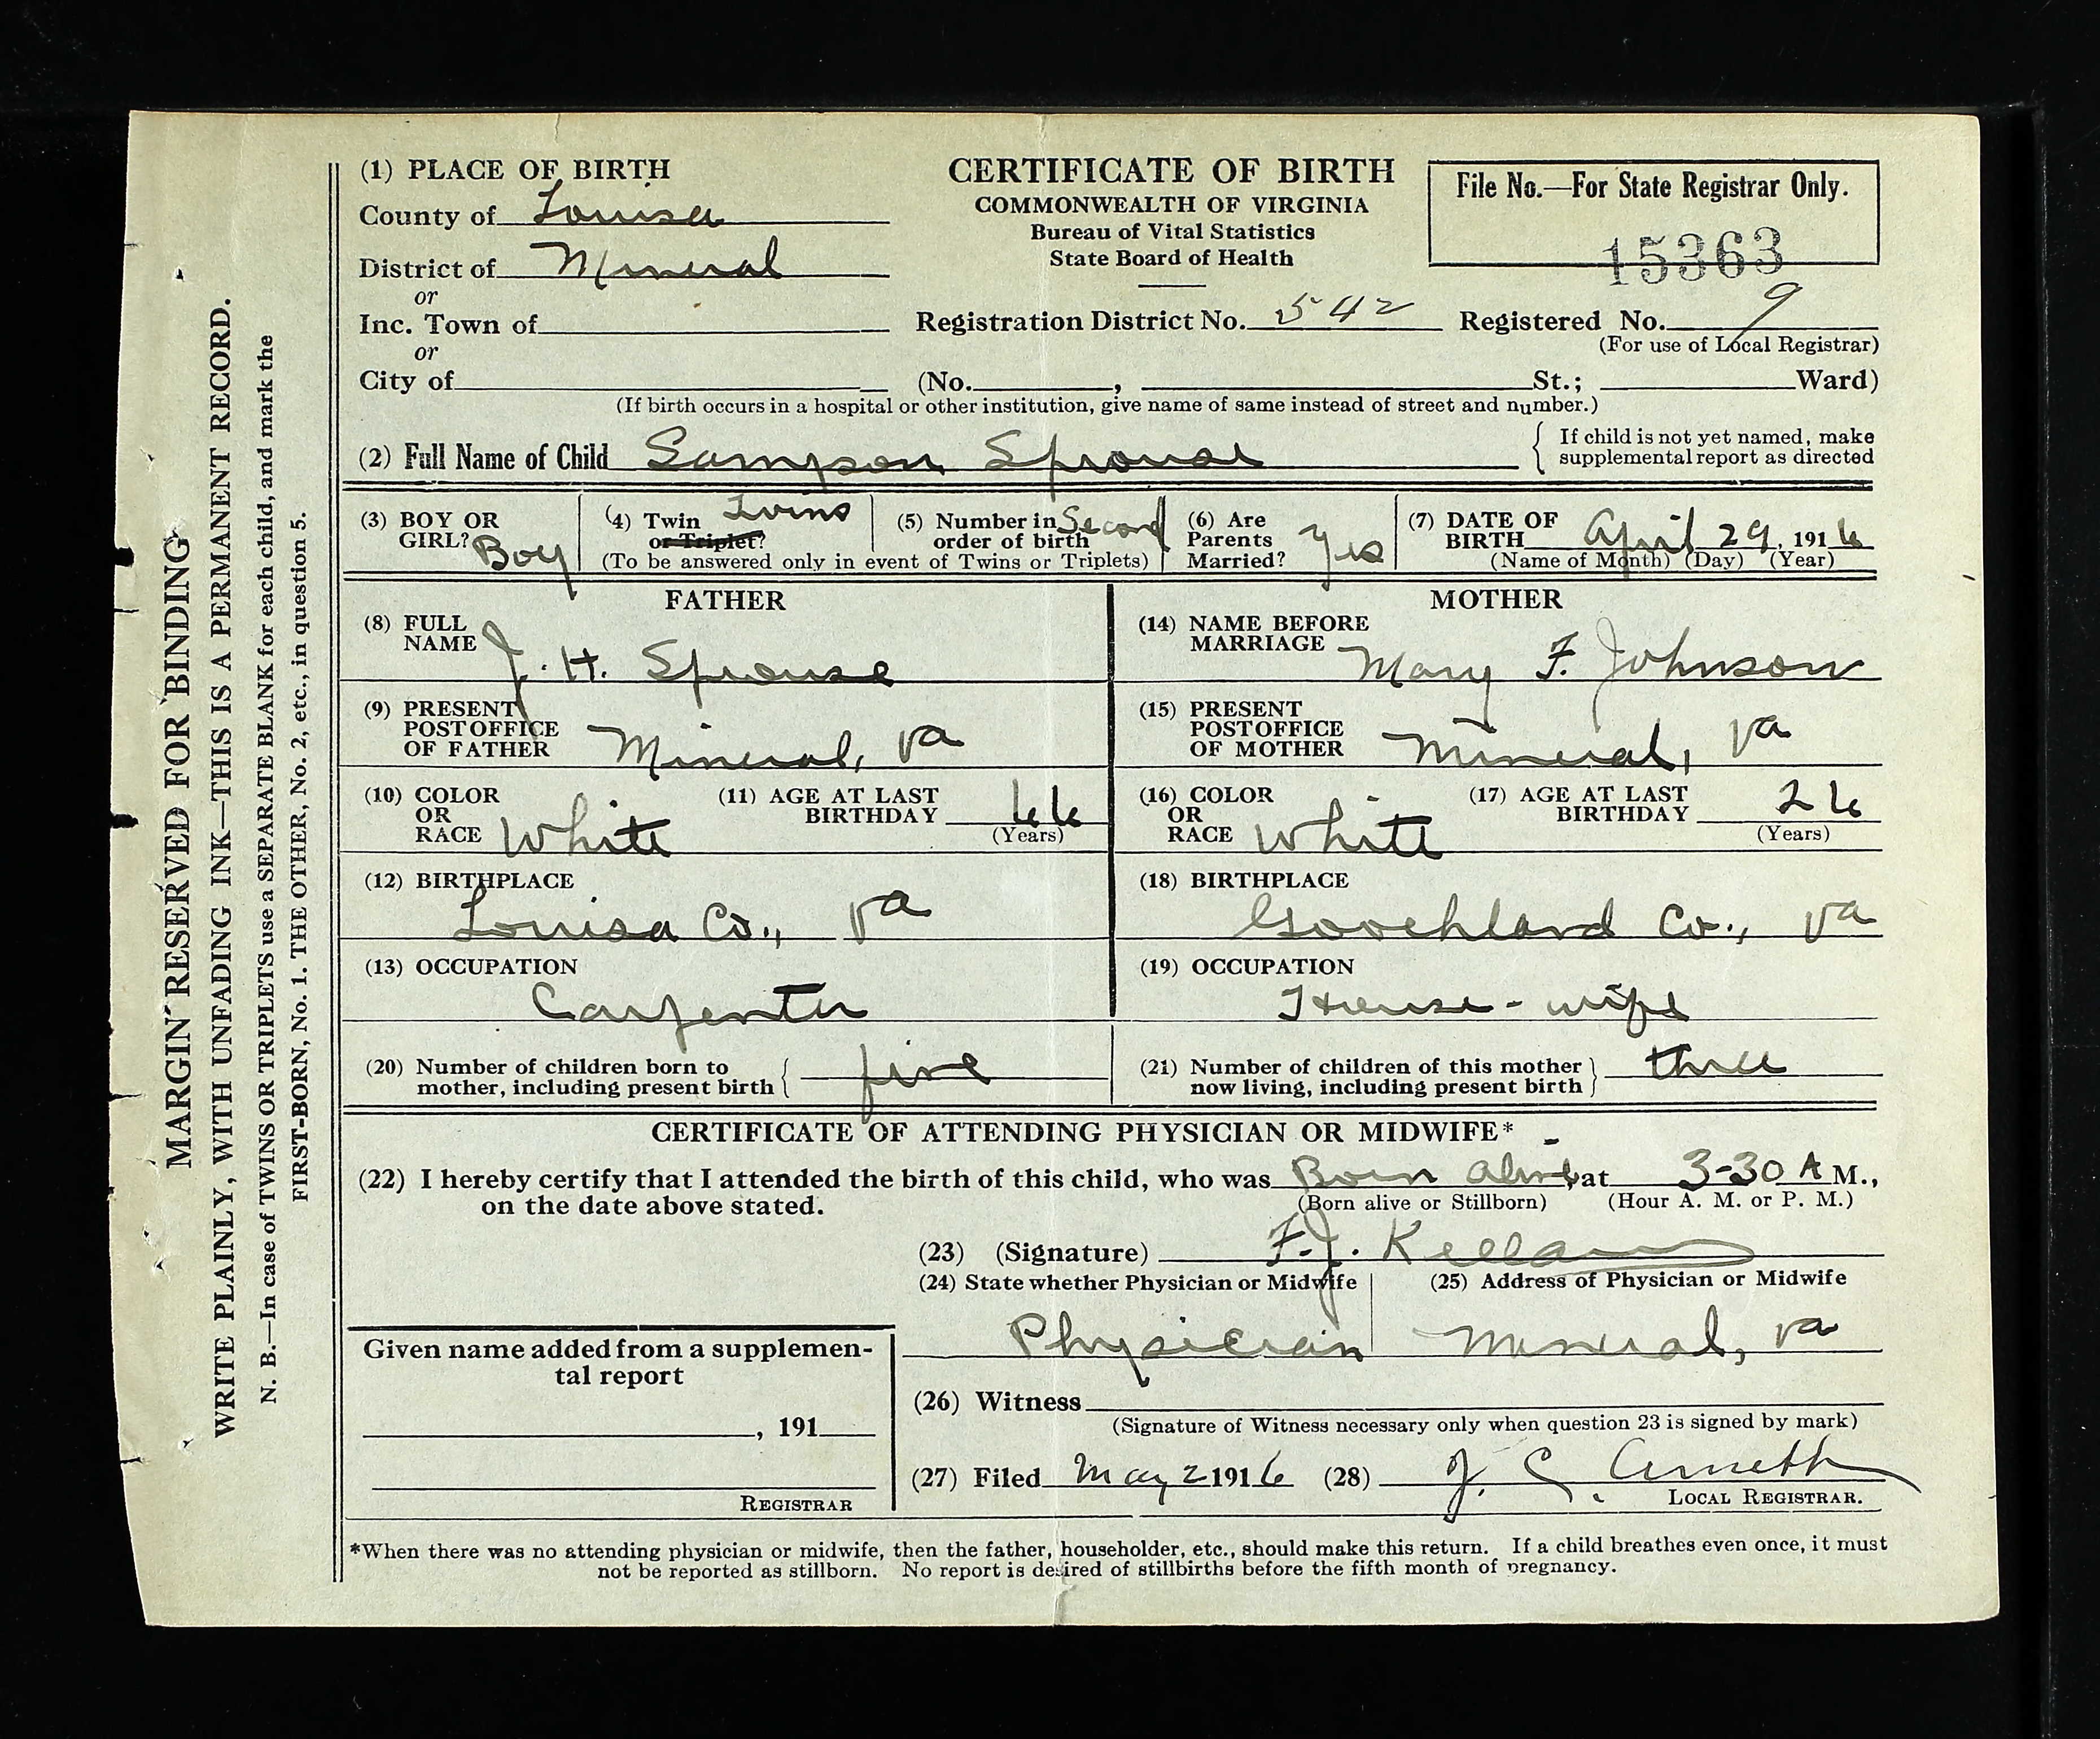 MARGIN RESERVED FOR BINDING
WRITE PLAINLY, WITH UNFADING INK—THIS IS A PERMANENT RECORD.
N. B.—In case of TWINS OR TRIPLETS use a SEPARATE BLANK for each child, and mark the
FIRST-BORN, No. 1. THE OTHER, No. 2, etc., in question 5.
(1) PLACE OF BIRTH
County of Louisa
District of Mineral
or
Inc. Town of
or
City of
CERTIFICATE OF BIRTH
COMMONWEALTH OF VIRGINIA
Bureau of Vital Statistics
State Board of Health
File No.—For State Registrar Only.
15363
Registration District No. 542 Registered No. 9
(For use of Local Registrar)
(No. , St.; Ward)
(If birth occurs in a hospital or other institution, give name of same instead of street and number.)
(2) Full Name of Child Sampson Sprouse
If child is not yet named, make
supplemental report as directed
(3) BOY OR
GIRL? Boy
(4) Twin Twins
or Triplet?
(5) Number in Second
order of birth
(To be answered only in event of Twins or Triplets)
(6) Are
Parents
Married? Yes
(7) DATE OF
BIRTH April 29, 1916
(Name of Month) (Day) (Year)
FATHER
(8) FULL
NAME J. H. Sprouse
(9) PRESENT
POSTOFFICE
OF FATHER Mineral, Va
(10) COLOR
OR
RACE White
(11) AGE AT LAST
BIRTHDAY 66
(Years)
(12) BIRTHPLACE
Louisa Co., Va
(13) OCCUPATION
Carpenter
MOTHER
(14) NAME BEFORE
MARRIAGE Mary F. Johnson
(15) PRESENT
POSTOFFICE
OF MOTHER Mineral, Va
(16) COLOR
OR
RACE White
(17) AGE AT LAST
BIRTHDAY 26
(Years)
(18) BIRTHPLACE
Goochland Co., Va
(19) OCCUPATION
House-wife
(20) Number of children born to
mother, including present birth five
(21) Number of children of this mother
now living, including present birth three
CERTIFICATE OF ATTENDING PHYSICIAN OR MIDWIFE*
(22) I hereby certify that I attended the birth of this child, who was Born alive, at 3-30 A M.,
on the date above stated.
(Born alive or Stillborn) (Hour A. M. or P. M.)
(23) (Signature) F. J. Kellam
(24) State whether Physician or Midwife
Physician
(25) Address of Physician or Midwife
Mineral, Va
Given name added from a supplemen-
tal report
, 191
REGISTRAR
(26) Witness
(Signature of Witness necessary only when question 23 is signed by mark)
(27) Filed May 2 1916 (28) J. C. Arnett
LOCAL REGISTRAR.
*When there was no attending physician or midwife, then the father, householder, etc., should make this return. If a child breathes even once, it must
not be reported as stillborn. No report is desired of stillbirths before the fifth month of pregnancy.